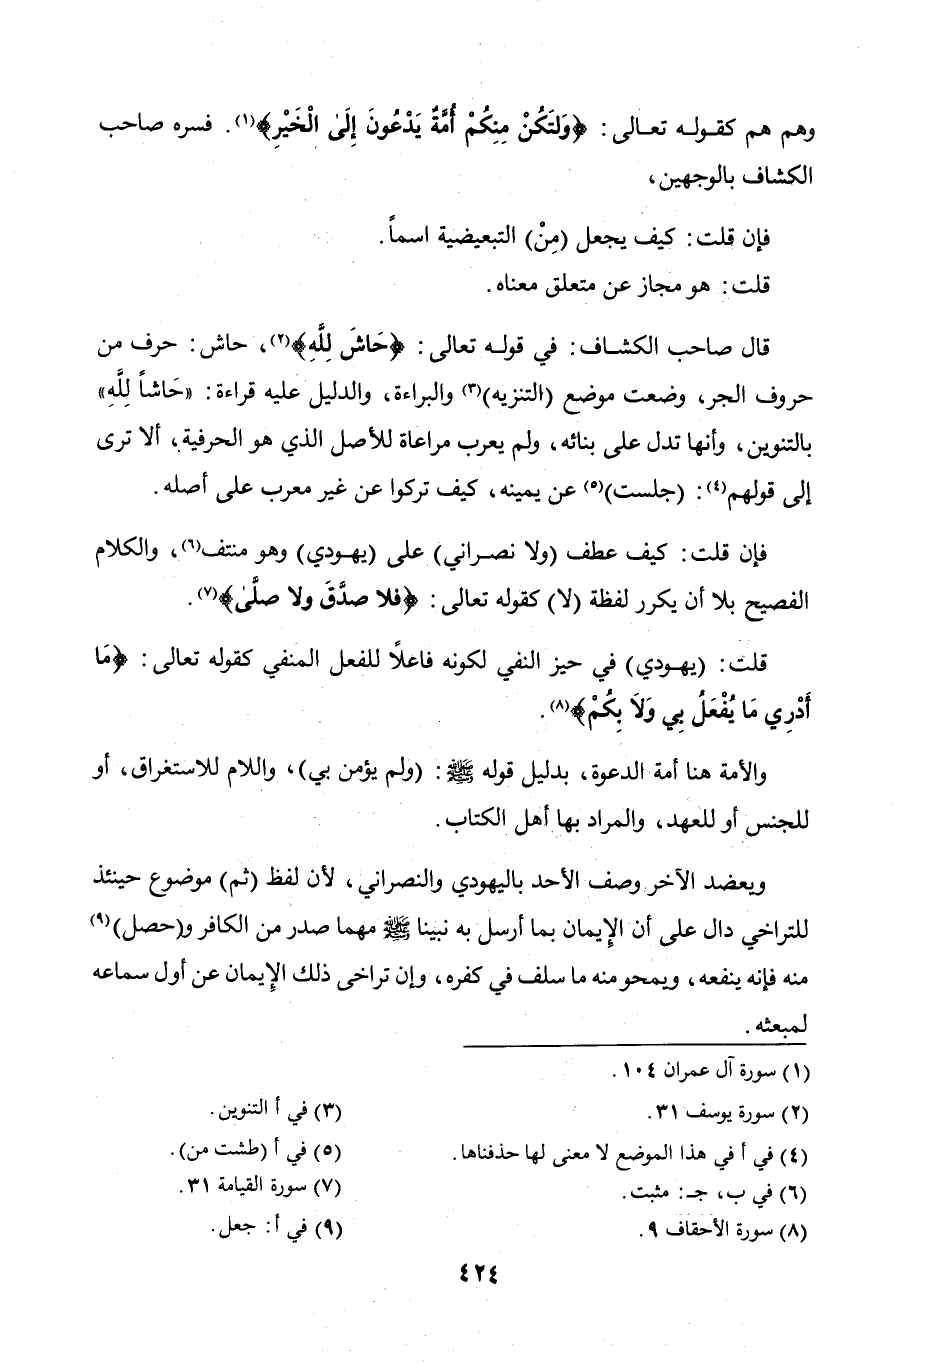 وهم هم كقوله تعالى: ﴿وَلتَكُنْ مِنِكُمْ أُمَّةٌ يَدْعُونَ إِلَىٰ الْخَيْرِ﴾(١). فسره صاحب
الكشاف بالوجهين،
فإن قلت: كيف يجعل (مِنْ) التبعيضية اسماً.
قلت: هو مجاز عن متعلق معناه.
قال صاحب الكشاف: في قوله تعالى: ﴿حَاشَ لِلَّهِ﴾(٢)، حاش: حرف من
حروف الجر، وضعت موضع (التنزيه)(٣) والبراءة، والدليل عليه قراءة: «حَاشاً لِلَّهِ»
بالتنوين، وأنها تدل على بنائه، ولم يعرب مراعاة للأصل الذي هو الحرفية، ألا ترى
إلى قولهم(٤): (جلست)(٥) عن يمينه، كيف تركوا عن غير معرب على أصله.
فإن قلت: كيف عطف (ولا نصراني) على (يهودي) وهو منتف(٦)، والكلام
الفصيح بلا أن يكرر لفظة (لا) كقوله تعالى: ﴿فلا صدَّقَ ولا صلَّىٰ﴾(٧).
قلت: (يهودي) في حيز النفي لكونه فاعلاً للفعل المنفي كقوله تعالى: ﴿مَا
أَدْرِي مَا يُفْعَلُ بِي وَلَا بِكُمْ﴾(٨).
والأمة هنا أمة الدعوة، بدليل قوله ﷺ: (ولم يؤمن بي)، واللام للاستغراق، أو
للجنس أو للعهد، والمراد بها أهل الكتاب.
ويعضد الآخر وصف الأحد باليهودي والنصراني، لأن لفظ (ثم) موضوع حينئذ
للتراخي دال على أن الإيمان بما أرسل به نبينا ﷺ مهما صدر من الكافر و(حصل)(٩)
منه فإنه ينفعه، ويمحو منه ما سلف في كفره، وإن تراخى ذلك الإيمان عن أول سماعه
لمبعثه.
(١) سورة آل عمران ١٠٤.
(٢) سورة يوسف ٣١.
(٣) في أ التنوين.
(٤) في أ في هذا الموضع لا معنى لها حذفناها.
(٥) في أ (طشت من).
(٦) في ب، جـ: مثبت.
(٧) سورة القيامة ٣١.
(٨) سورة الأحقاف ٩.
(٩) في أ: جعل.
٤٢٤